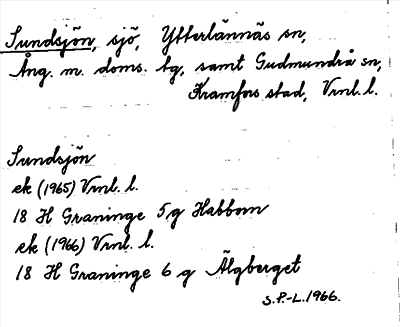 Sundsjön, sjö, Ytterlännäs sn,
Ång. m. doms. tg, samt Gudmundrå sn,
Kramfors stad, Vrnl. l.
Sundsjön
ek (1965) Vrnl. l.
18 H Graninge 5 g Habborn
ek (1966) Vrnl. l.
18 H Graninge 6 g Älgberget
S.P.-L. 1966.